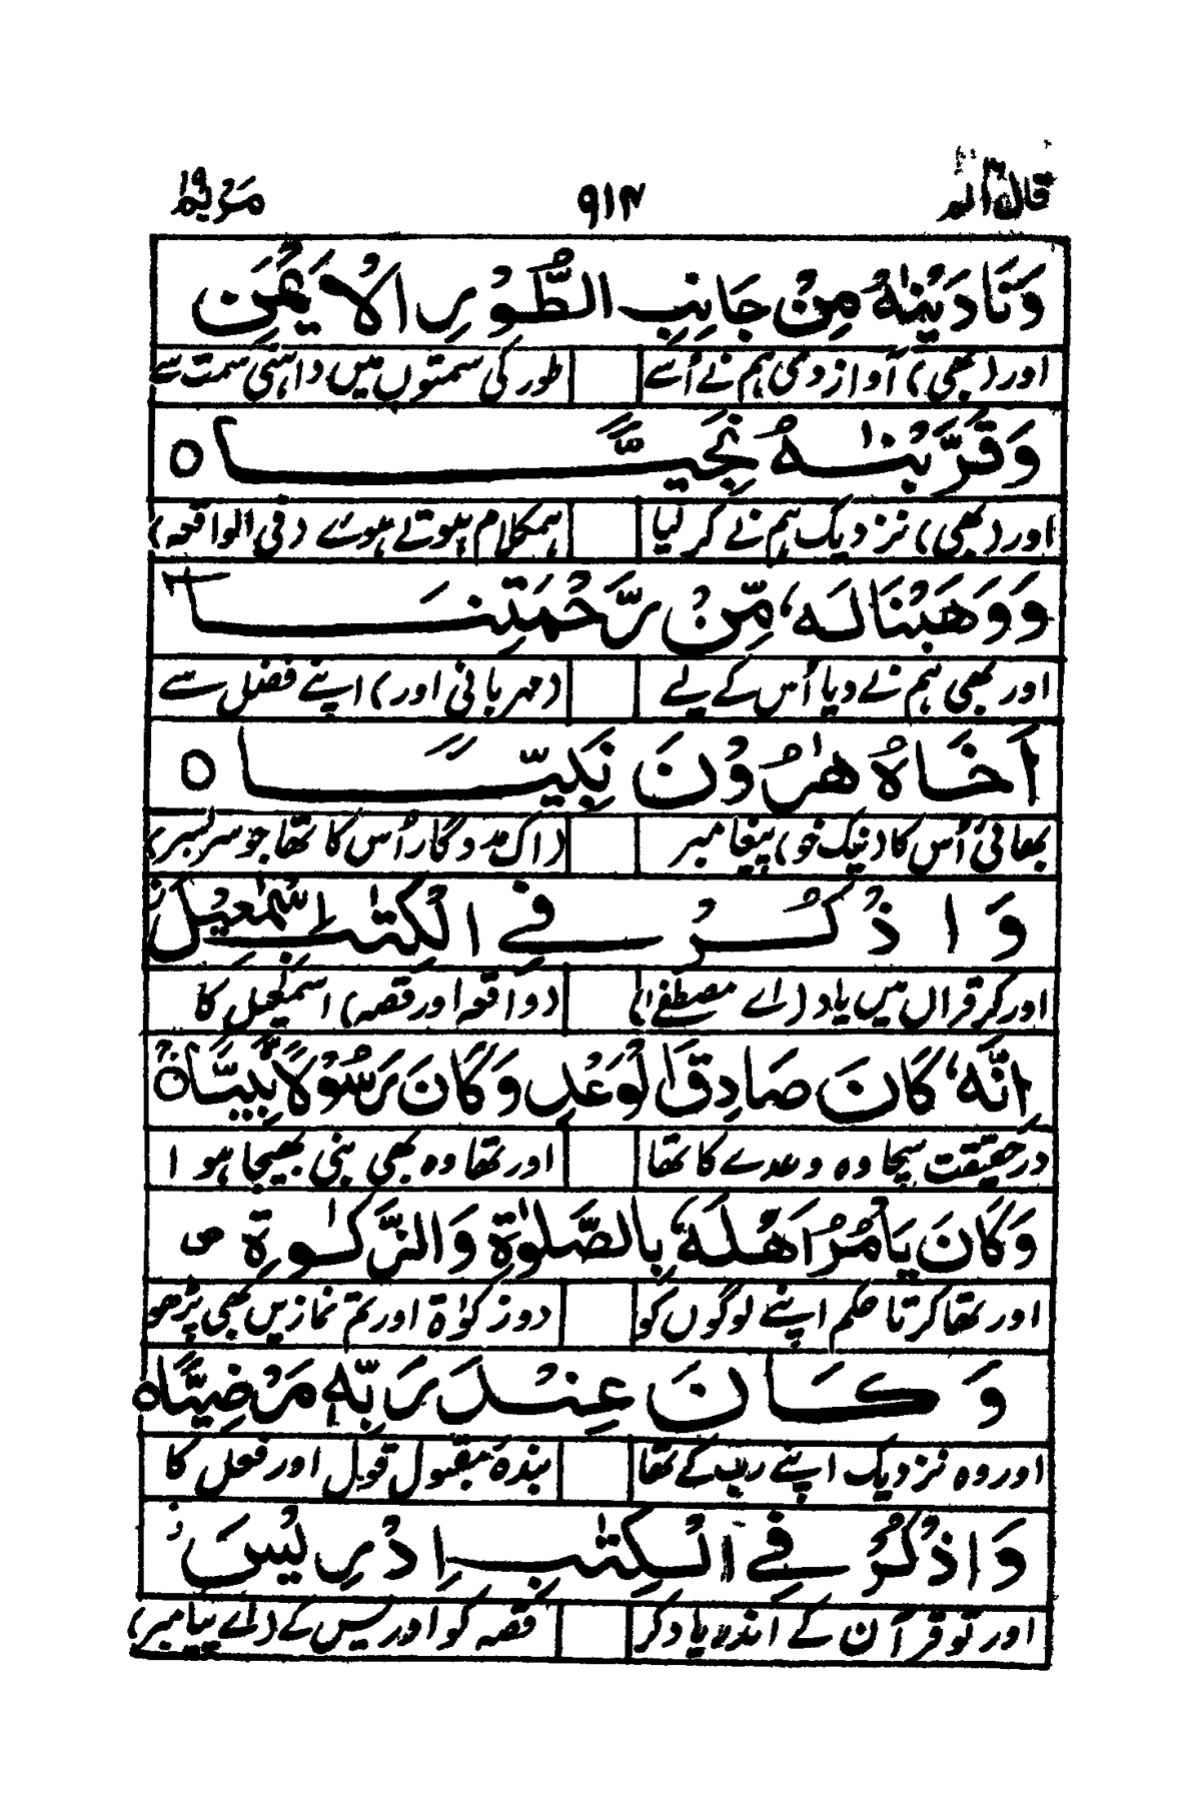 قال الم ۱۶ ۹۱۴ مریم ۱۹
وَنَادَيْنٰهُ مِنْ جَانِبِ الطُّوْرِ الْاَيْمَنِ
اور (بھی) آواز دی ہم نے اُسے طور کی سمتوں میں داہنی سمت سے
وَقَرَّبْنٰهُ نَجِيًّا ○
اور (بھی) نزدیک ہم نے کر لیا ہمکلام ہوتے ہوئے (فی الواقعہ)
وَوَهَبْنَا لَهٗ مِّنْ رَّحْمَتِنَا
اور بھی ہم نے دیا اُس کے لیے (مہربانی اور) اپنے فضل سے
اَخَاهُ هٰرُوْنَ نَبِيًّا ○
بھائی اُس کا (نیک خو) پیغامبر (اک مددگار اُس کا تھا جو سربسر)
وَاذْكُرْ فِي الْكِتٰبِ اِسْمٰعِيْلَ
اور کر قرآں میں یاد (اے مصطفےٰ) (واقعہ اور قصہ) اسمٰعیل کا
اِنَّهٗ كَانَ صَادِقَ الْوَعْدِ وَكَانَ رَسُوْلًا نَّبِيًّا ○
درحقیقت سچا وہ وعدے کا تھا اور تھا وہ بھی نبی بھیجا ہوا
وَكَانَ يَاْمُرُ اَهْلَهٗ بِالصَّلٰوةِ وَالزَّكٰوةِ ص
اور تھا کرتا حکم اپنے لوگوں کو دو زکوٰۃ اور تم نمازیں بھی پڑھو
وَكَانَ عِنْدَ رَبِّهٖ مَرْضِيًّا ○
اور وہ نزدیک اپنے رب کے تھا بندہ مقبول قول اور فعل کا
وَاذْكُرْ فِي الْكِتٰبِ اِدْرِيْسَ
اور تو قرآن کے اندر یاد کر قصہ کو ادریس کے (اے پیامبر)